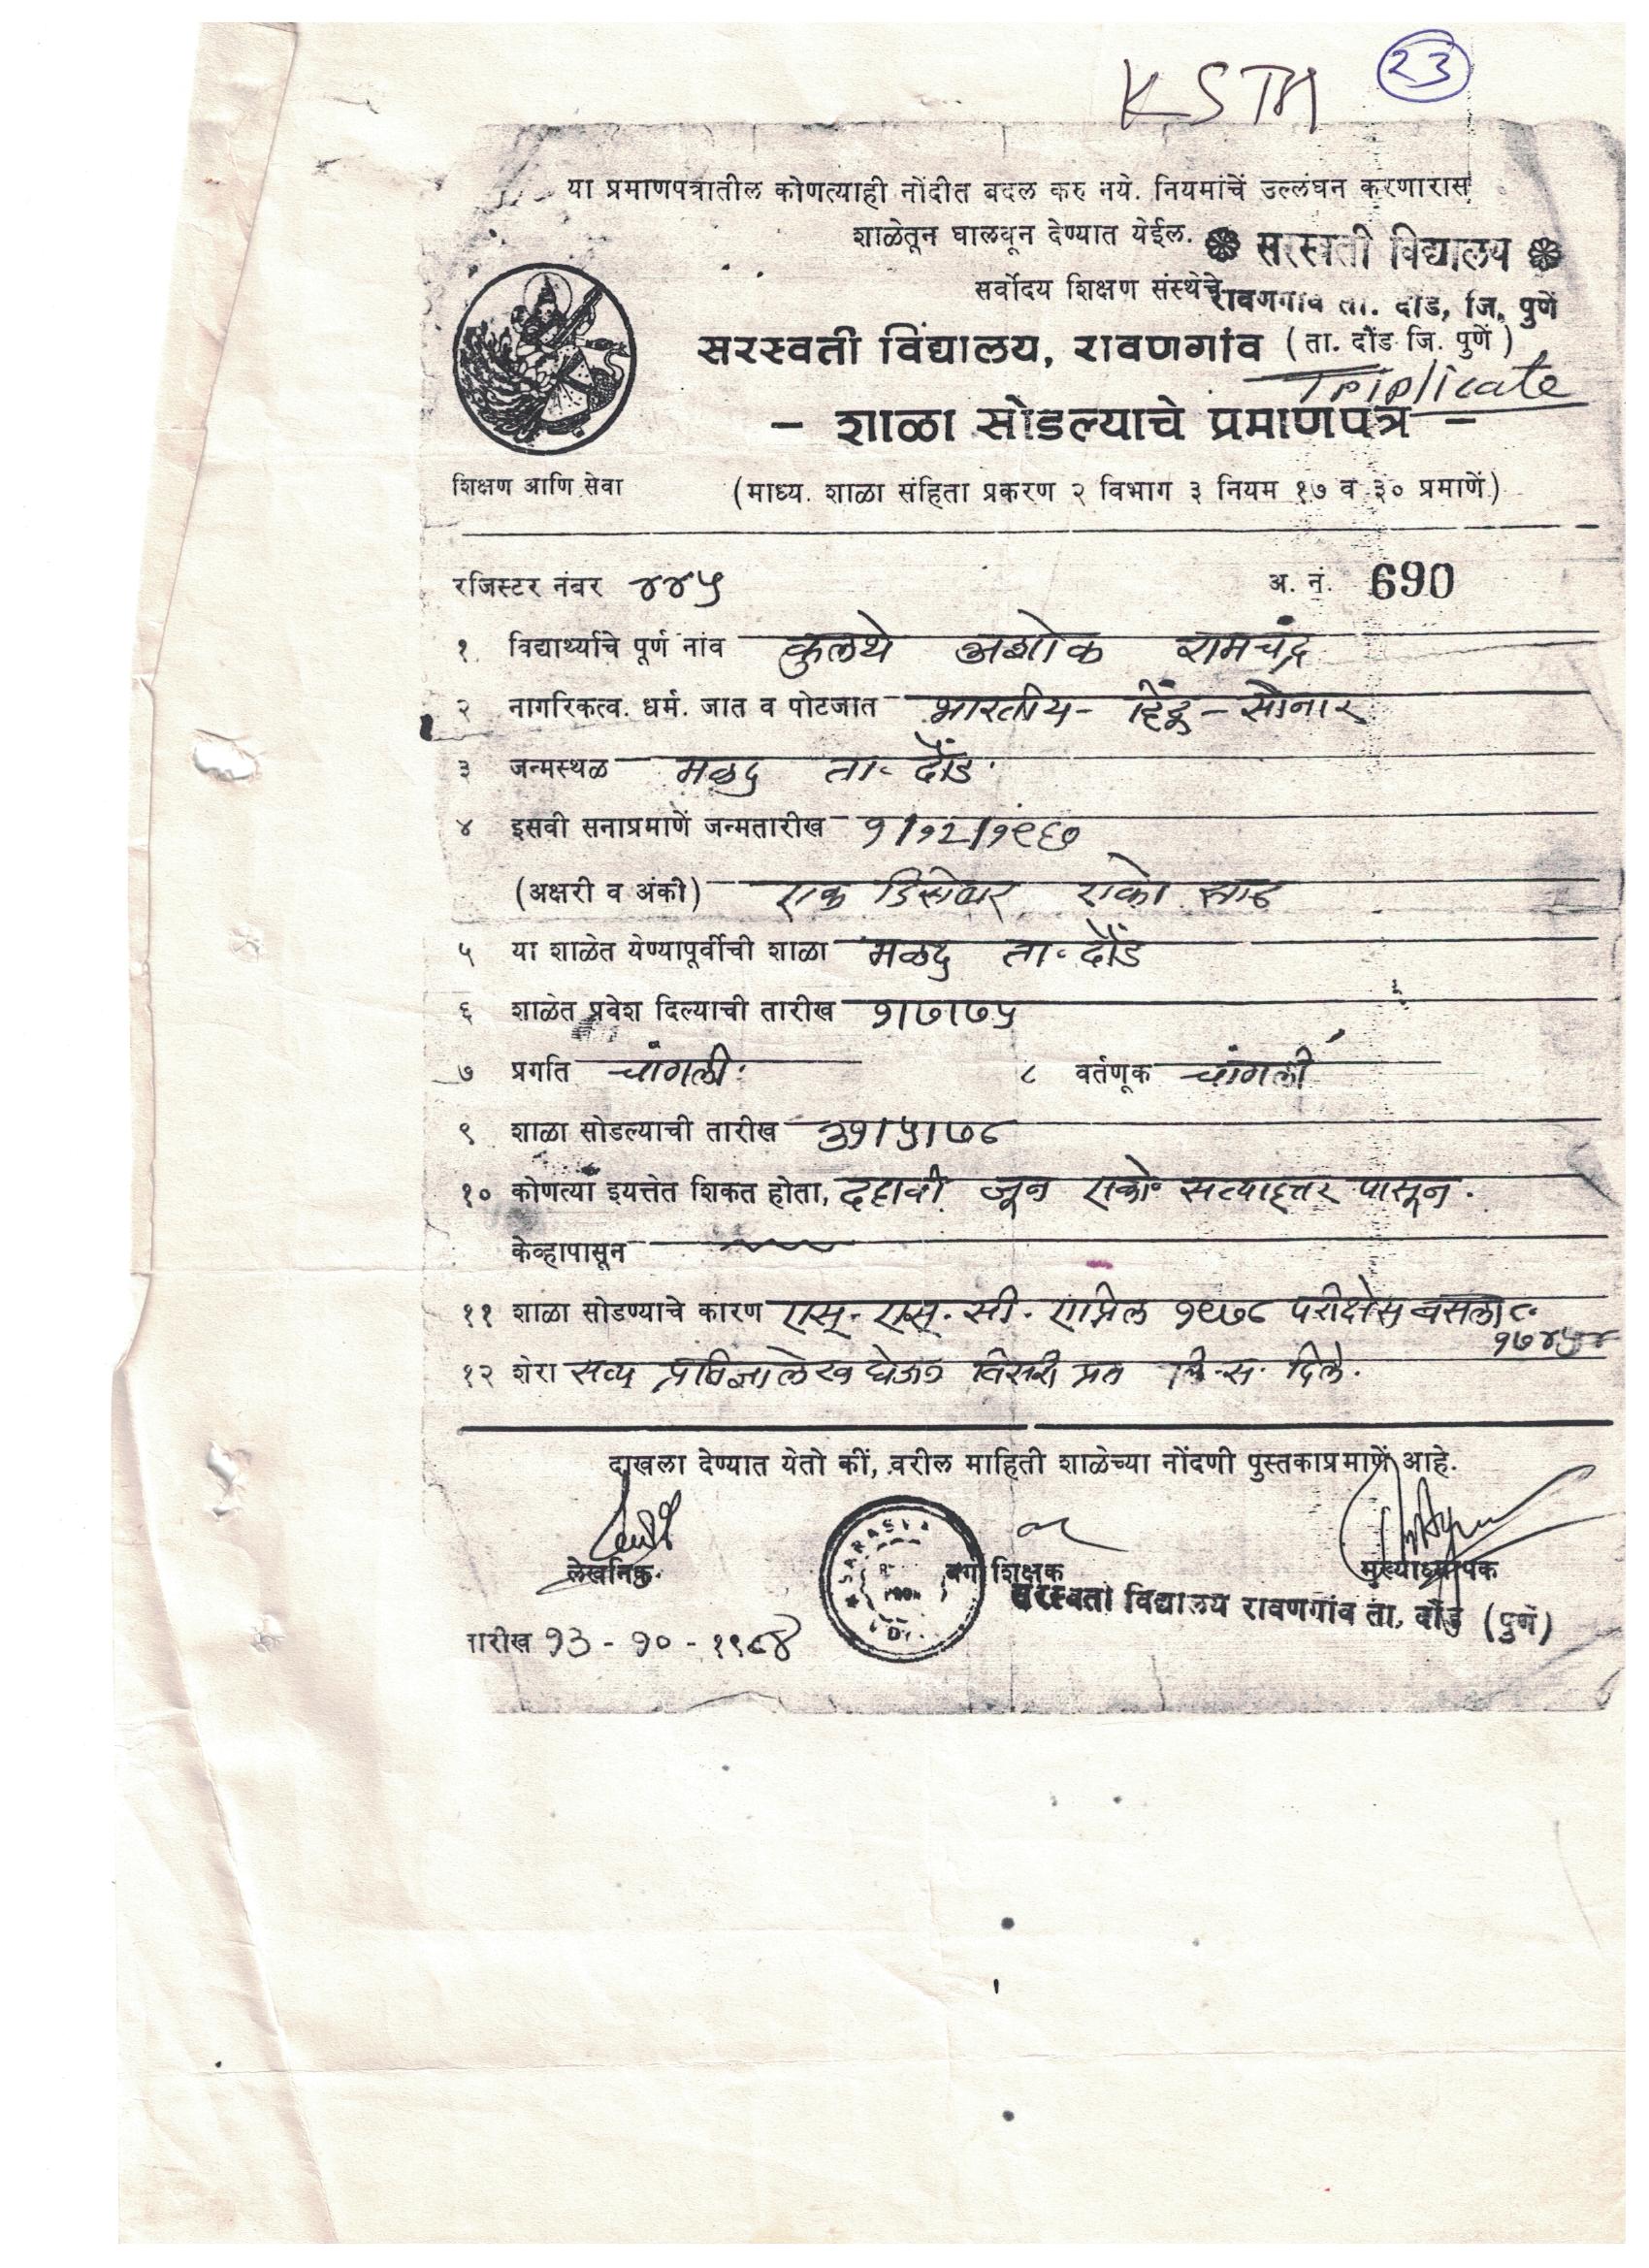 KSTA 23
या प्रमाणपत्रातील कोणत्याही नोंदीत बदल करु नये. नियमांचें उल्लंघन करणारास
शाळेतून घालवून देण्यात येईल.
सरस्वती विद्यालय
सर्वोदय शिक्षण संस्थेचे
रावणगांव ता. दौंड, जि. पुणें
सरस्वती विद्यालय, रावणगांव (ता. दौंड जि. पुणें)
Triplicate
- शाळा सोडल्याचे प्रमाणपत्र -
शिक्षण आणि सेवा
(माध्य. शाळा संहिता प्रकरण २ विभाग ३ नियम १७ व ३० प्रमाणें)
रजिस्टर नंबर ४४५ अ. नं. 690
१ विद्यार्थ्याचे पूर्ण नांव कुलथे अशोक रामचंद्र
२ नागरिकत्व. धर्म. जात व पोटजात भारतीय - हिंदू - सोनार
३ जन्मस्थळ मळद ता. दौंड.
४ इसवी सनाप्रमाणें जन्मतारीख १/१२/१९६७
(अक्षरी व अंकी) एक डिसेंबर एको साठ
५ या शाळेत येण्यापूर्वीची शाळा मळद ता. दौंड
६ शाळेत प्रवेश दिल्याची तारीख १/७/७५
७ प्रगति चांगली. ८ वर्तणूक चांगली
९ शाळा सोडल्याची तारीख ३१/५/७८
१० कोणत्या इयत्तेत शिकत होता, दहावी जून एको. सत्याहत्तर पासून.
केव्हापासून
११ शाळा सोडण्याचे कारण एस्. एस्. सी. एप्रिल १९७८ परीक्षेस बसला
१७४५४
१२ शेरा सत्य प्रतिज्ञालेख घेऊन तिसरी प्रत दिले.
दाखला देण्यात येतो कीं, वरील माहिती शाळेच्या नोंदणी पुस्तकाप्रमाणें आहे.
लेखनिक वर्ग शिक्षक मुख्याध्यापक
सरस्वती विद्यालय रावणगांव ता. दौंड (पुणें)
तारीख १३ - १० - १९८४